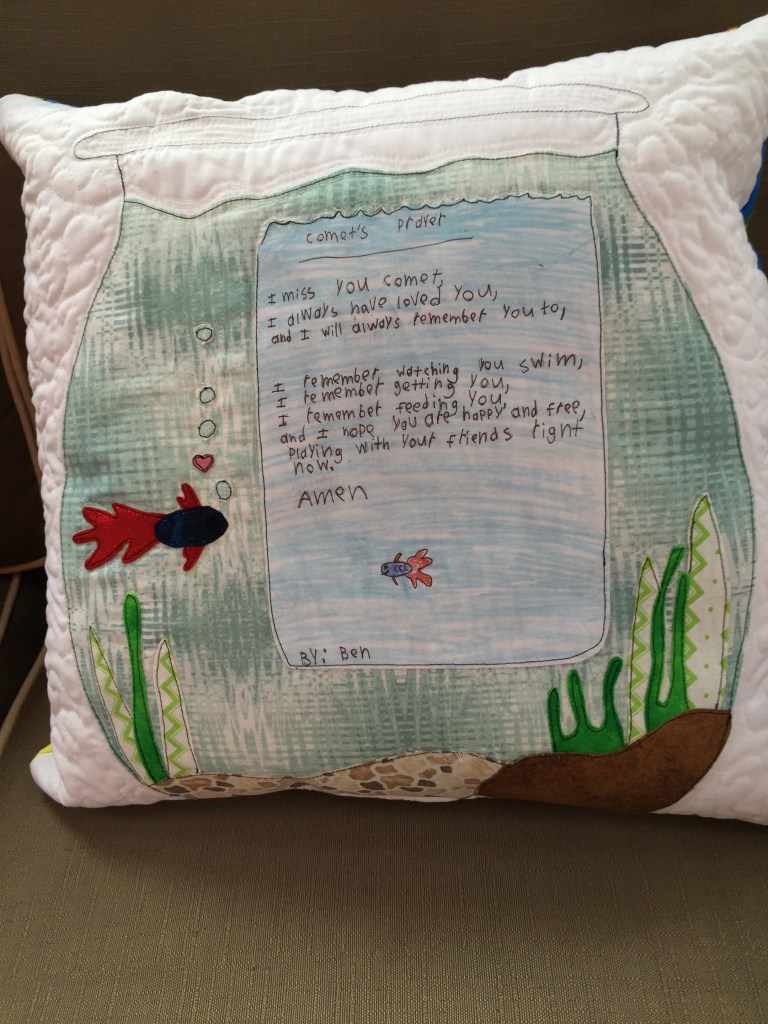 Comet's Prayer
I miss you comet,
I always have loved you,
and I will always remember you to,
I remember watching you swim,
I remember getting you,
I remember feeding you,
and I hope you are happy and free,
playing with your friends right
now.
Amen
BY: Ben